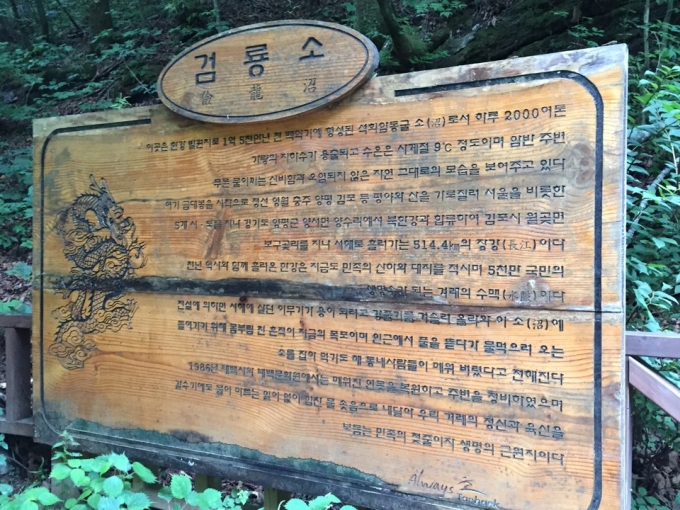 검룡소
儉龍沼
이곳은 한강 발원지로 1억 5천만년 전 백악기에 형성된 석회암동굴 소(沼)로서 하루 2000여톤
가량의 지하수가 용출되고 수온은 사계절 9℃ 정도이며 암반 주변
푸른 물이끼는 신비함과 오염되지 않은 자연 그대로의 모습을 보여주고 있다
여기 금대봉을 시작으로 정선 영월 충주 양평 김포 등 평야와 산을 가로질러 서울을 비롯한
5개 시·도를 지나 경기도 양평군 양서면 양수리에서 북한강과 합류하여 김포시 월곶면
보구곶리를 지나 서해로 흘러가는 514.4km의 장강(長江)이다
천년 역사와 함께 흘러온 한강은 지금도 민족의 산하와 대지를 적시며 5천만 국민의
생명수가 되는 겨레의 수맥(水脈)이다
전설에 의하면 서해에 살던 이무기가 용이 되려고 강줄기를 거슬러 올라와 이 소(沼)에
들어가기 위해 몸부림 친 흔적이 지금의 폭포이며 인근에서 풀을 뜯다가 물먹으러 오는
소를 잡아 먹기도 해 동네사람들이 메워 버렸다고 전해진다
1986년 태백시와 태백문화원에서는 메워진 연못을 복원하고 주변을 정비하였으며
갈수기에도 물이 마르는 일이 없이 힘찬 물 솟음으로 내달아 우리 겨레의 정신과 육신을
보듬는 민족의 젖줄이자 생명의 근원지이다
Always
Taebaek